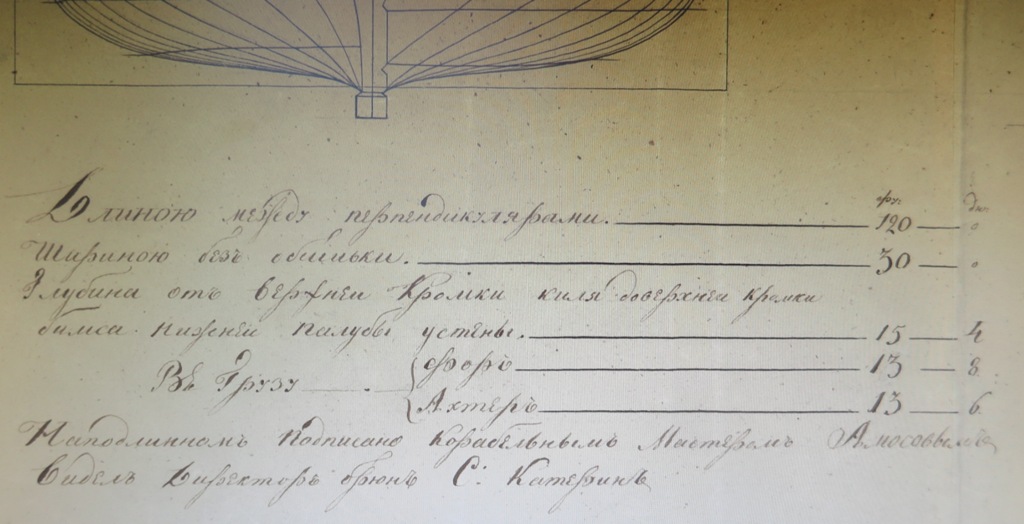 фу. дю.
Длиною между перпендикулярами. 120 — 0
Шириною безъ обшивки. 30 — 0
Глубина отъ верхней кромки киля доверхней кромки
бимса нижней палубы устены. 15 — 4
Въ Грузу { Форъ 13 — 8
Ахтеръ 13 — 6
Наподлинномъ подписано Корабельнымъ Мастеромъ Амосовымъ
Виделъ Директоръ брюнъ С: Катеринъ